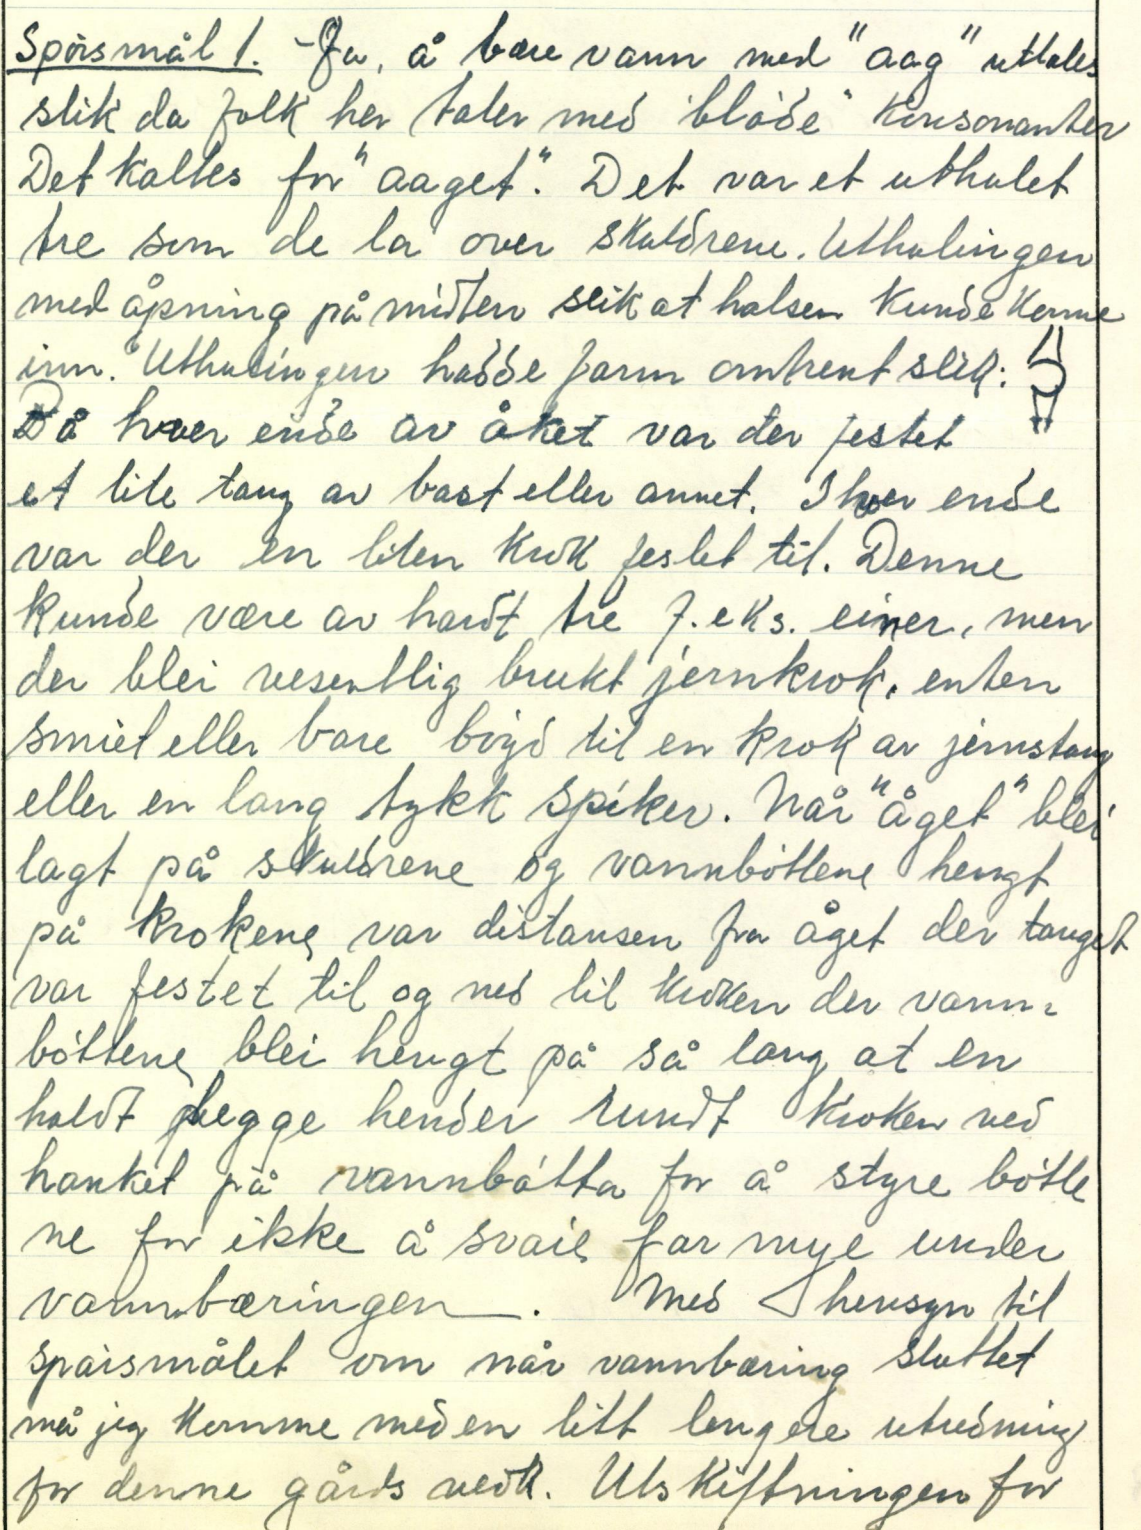 Spörsmål 1. - Ja, å bære vann med "aag" uttales
slik da folk her taler med "blöde" konsonanter
Det kaltes for "aaget". Det var et uthulet
tre som de la over skuldrene. Uthulingen
med åpning på midten slik at halsen kunde komme
inn. Uthulingen hadde form omtrent slik:
På hver ende av åket var der festet
et lite taug av bast eller annet. I hver ende
var der en liten krok festet til. Denne
kunde være av hardt tre f.eks. einer, men
der blei vesentlig brukt jernkrok, enten
smiet eller bare böyd til en krok av jernstang
eller en lang tykk spiker. Når "åget" blei
lagt på skuldrene og vannböttene hengt
på krokene, var distansen fra åget der tauget
var festet til og ned til kroken der vann-
böttene blei hengt på så lang at en
holdt begge hender rundt kroken ved
hanket på vannbötta for å styre bötte
ne for ikke å svaie for mye under
vannbæringen. Med hensyn til
spörsmålet om når vannbæring sluttet
må jeg komme med en litt lengere utredning
for denne gårds vedk. Utskiftningen for